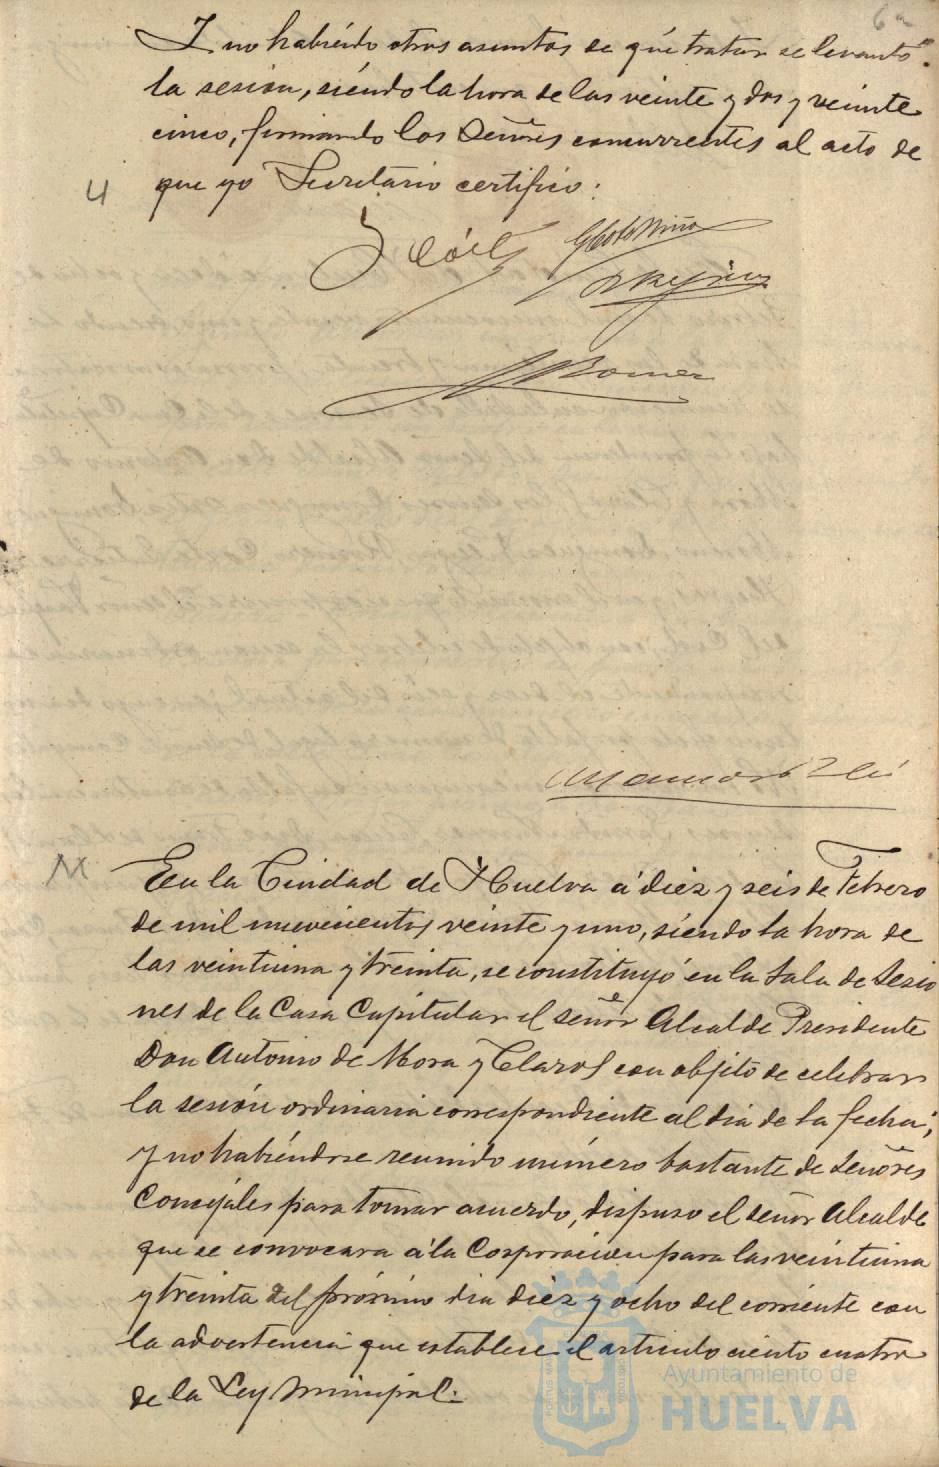 Y no habiendo otros asuntos de que tratar se levantó
la sesión, siendo la hora de las veinte y dos y veinte
cinco, firmando los Señores concurrentes al acto de
que yo Secretario certifico:
En la Ciudad de Huelva a diez y seis de Febrero
de mil novecientos veinte y uno, siendo la hora de
las veintiuna y treinta, se constituyó en la Sala de Sesio
nes de la Casa Capitular el señor Alcalde Presidente
Don Antonio de Mora y Claros con objeto de celebrar
la sesión ordinaria correspondiente al dia de la fecha;
y no habiéndose reunido número bastante de Señores
Concejales para tomar acuerdo, dispuso el señor Alcalde
que se convocara a la Corporacion para las veintiuna
y treinta del próximo dia diez y ocho del corriente con
la advertencia que establece el articulo ciento cuatro
de la Ley Municipal.
Ayuntamiento de
HUELVA